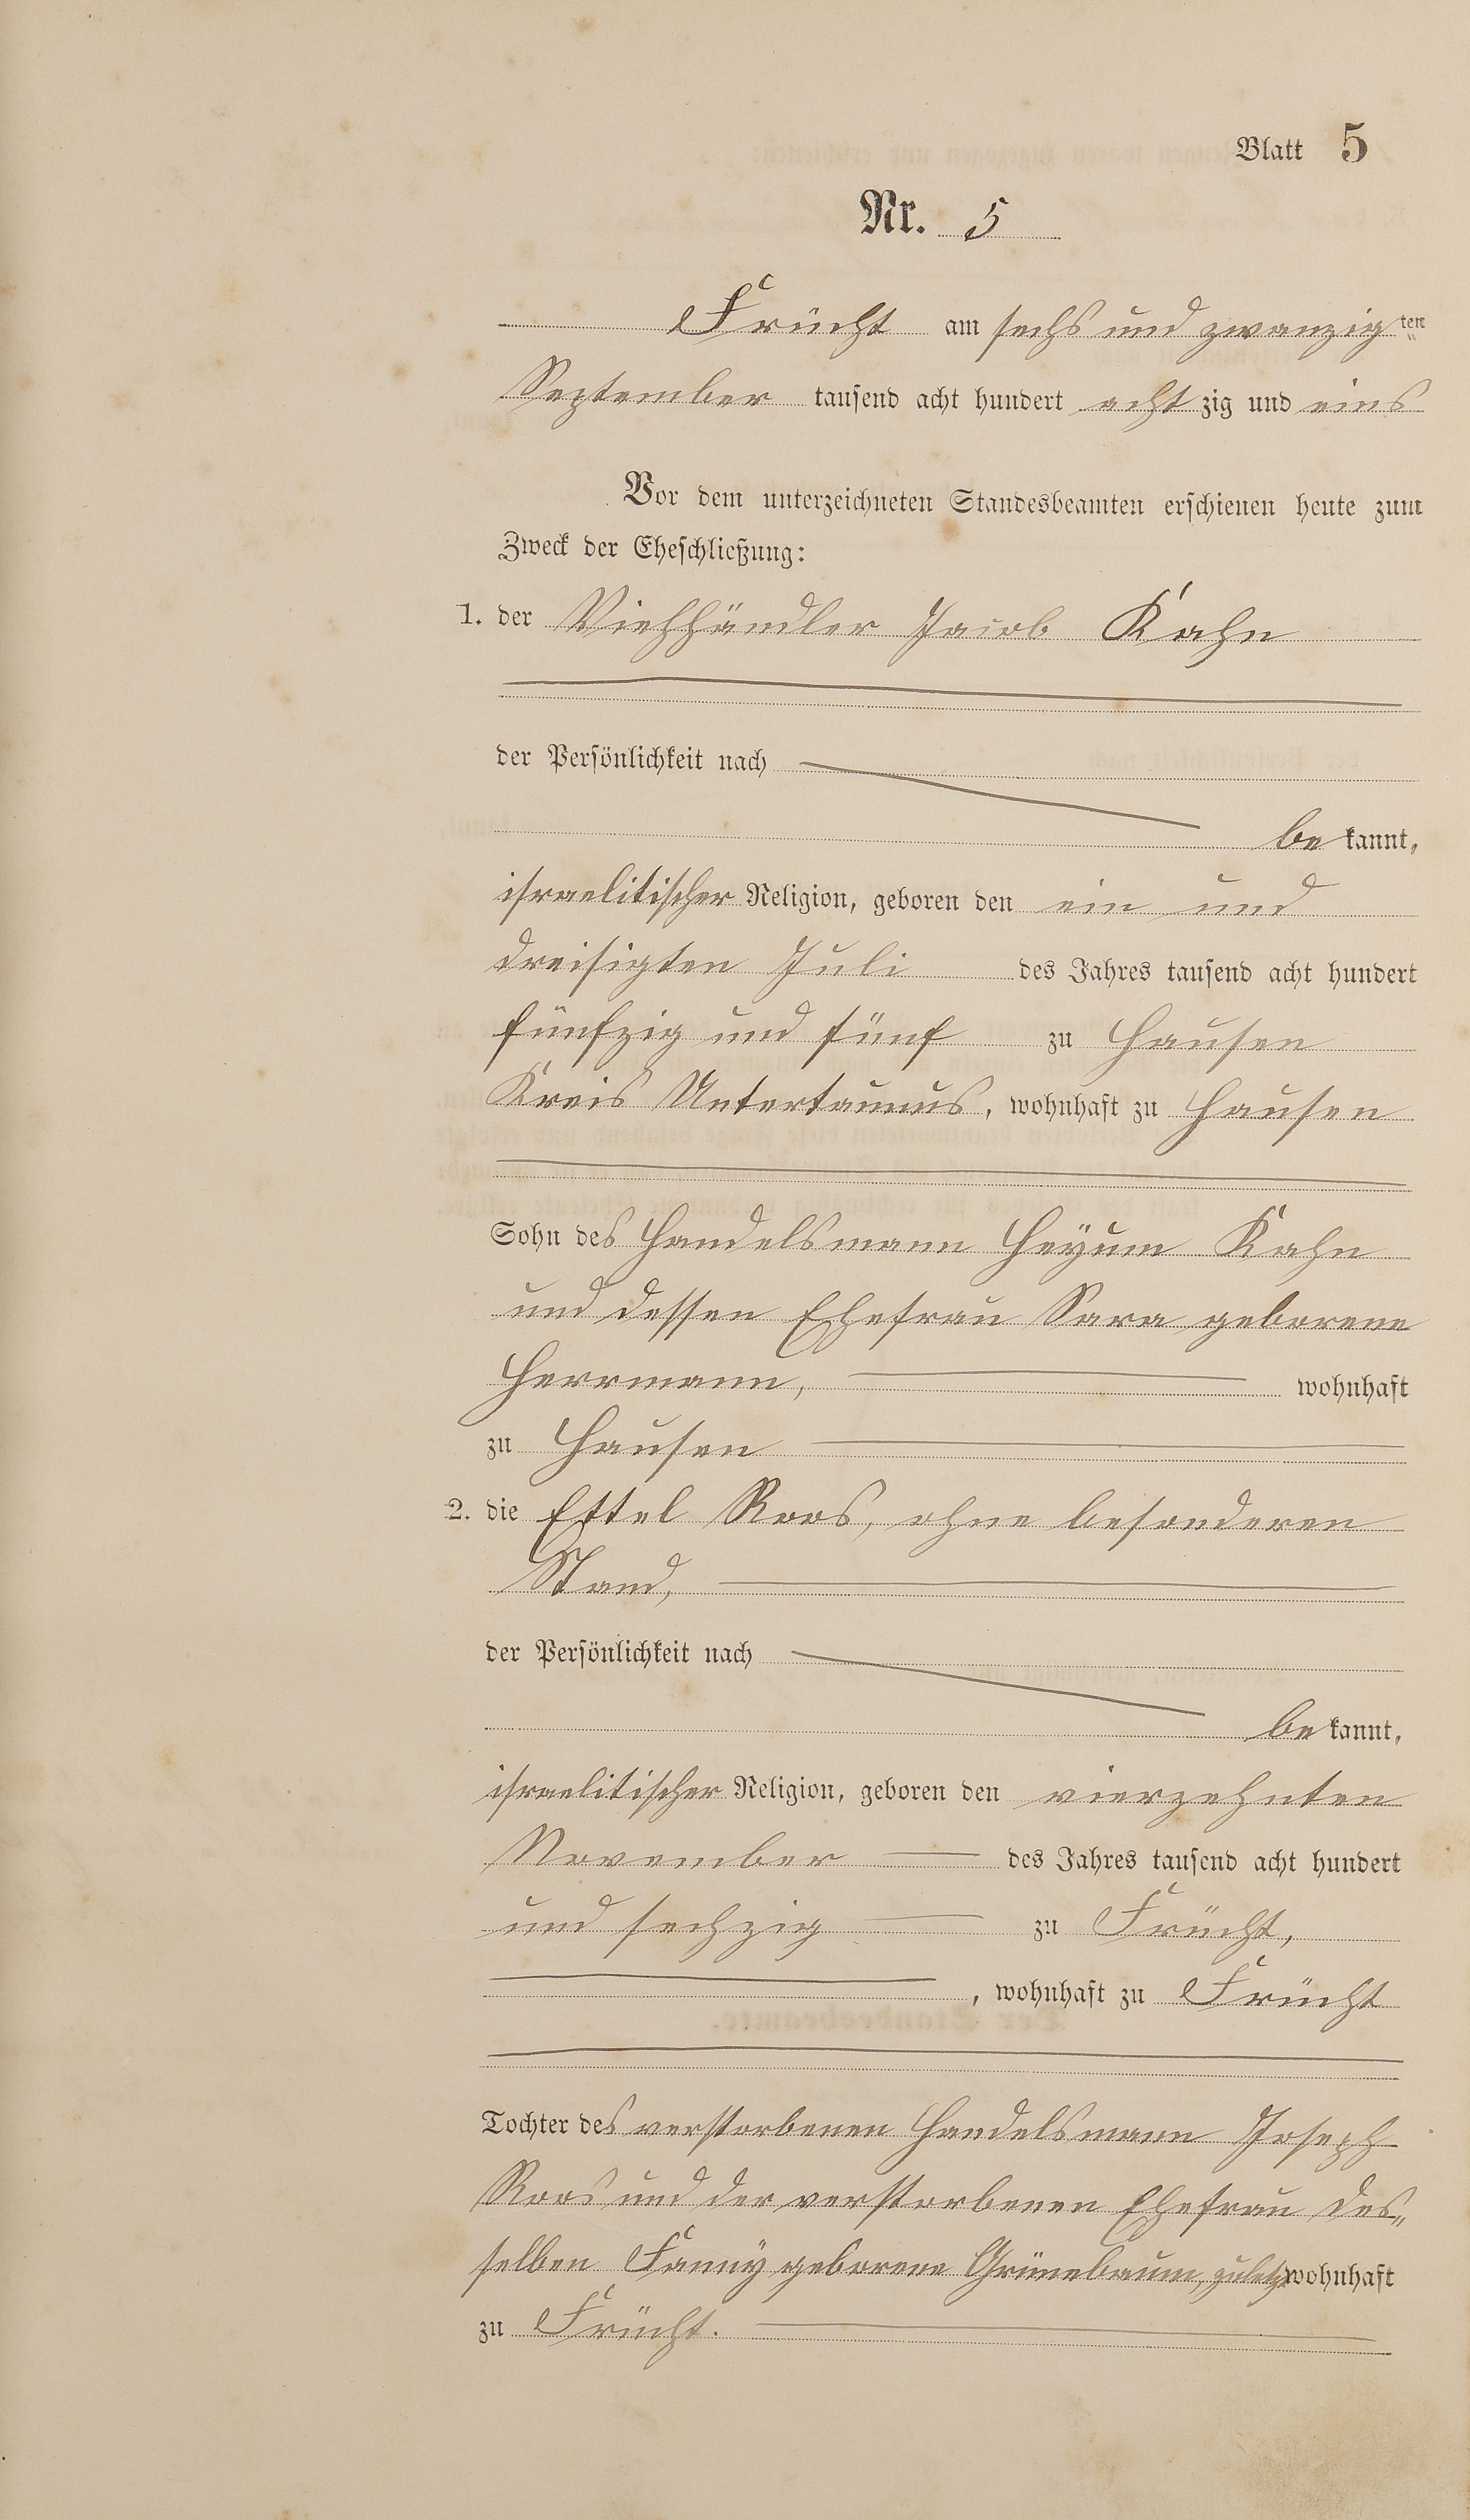 Blatt 5
Nr. 5
Frücht am sechs und zwanzig ten
September tausend acht hundert acht zig und eins
Vor dem unterzeichneten Standesbeamten erschienen heute zum
Zweck der Eheschließung:
1. der Viehhändler Jacob Kahn
der Persönlichkeit nach
be kannt,
israelitischer Religion, geboren den ein und
dreisigten Juli des Jahres tausend acht hundert
fünfzig und fünf zu Hausen
Kreis Untertaunus, wohnhaft zu Hausen
Sohn des Handelsmann Heyum Kahn
und dessen Ehefrau Sara geborene
Herrmann, wohnhaft
zu Hausen
2. die Ettel Roos, ohne besonderen
Stand,
der Persönlichkeit nach
be kannt,
israelitischer Religion, geboren den vierzehnten
November des Jahres tausend acht hundert
und sechzig zu Frücht,
, wohnhaft zu Frücht
Tochter des verstorbenen Handelsmann Joseph
Roos und der verstorbenen Ehefrau des„
selben Fanny geborene Grünebaum, zuletzt wohnhaft
zu Frücht.